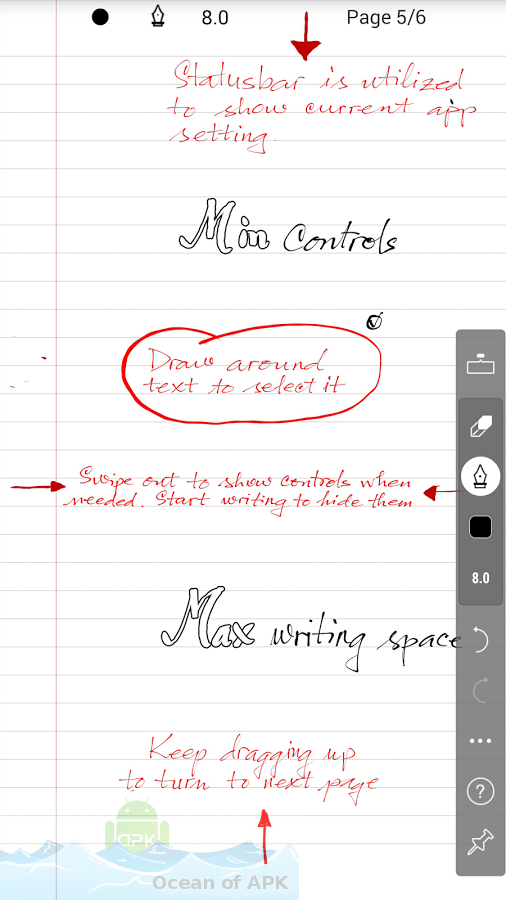 8.0
Page 5/6
Statusbar is utilized
to show current app
setting.
Min Controls
Draw around
text to select it
Swipe out to show controls when
needed. Start writing to hide them
8.0
Max writing space
Keep dragging up
to turn to next page
?
APK
Ocean of APK